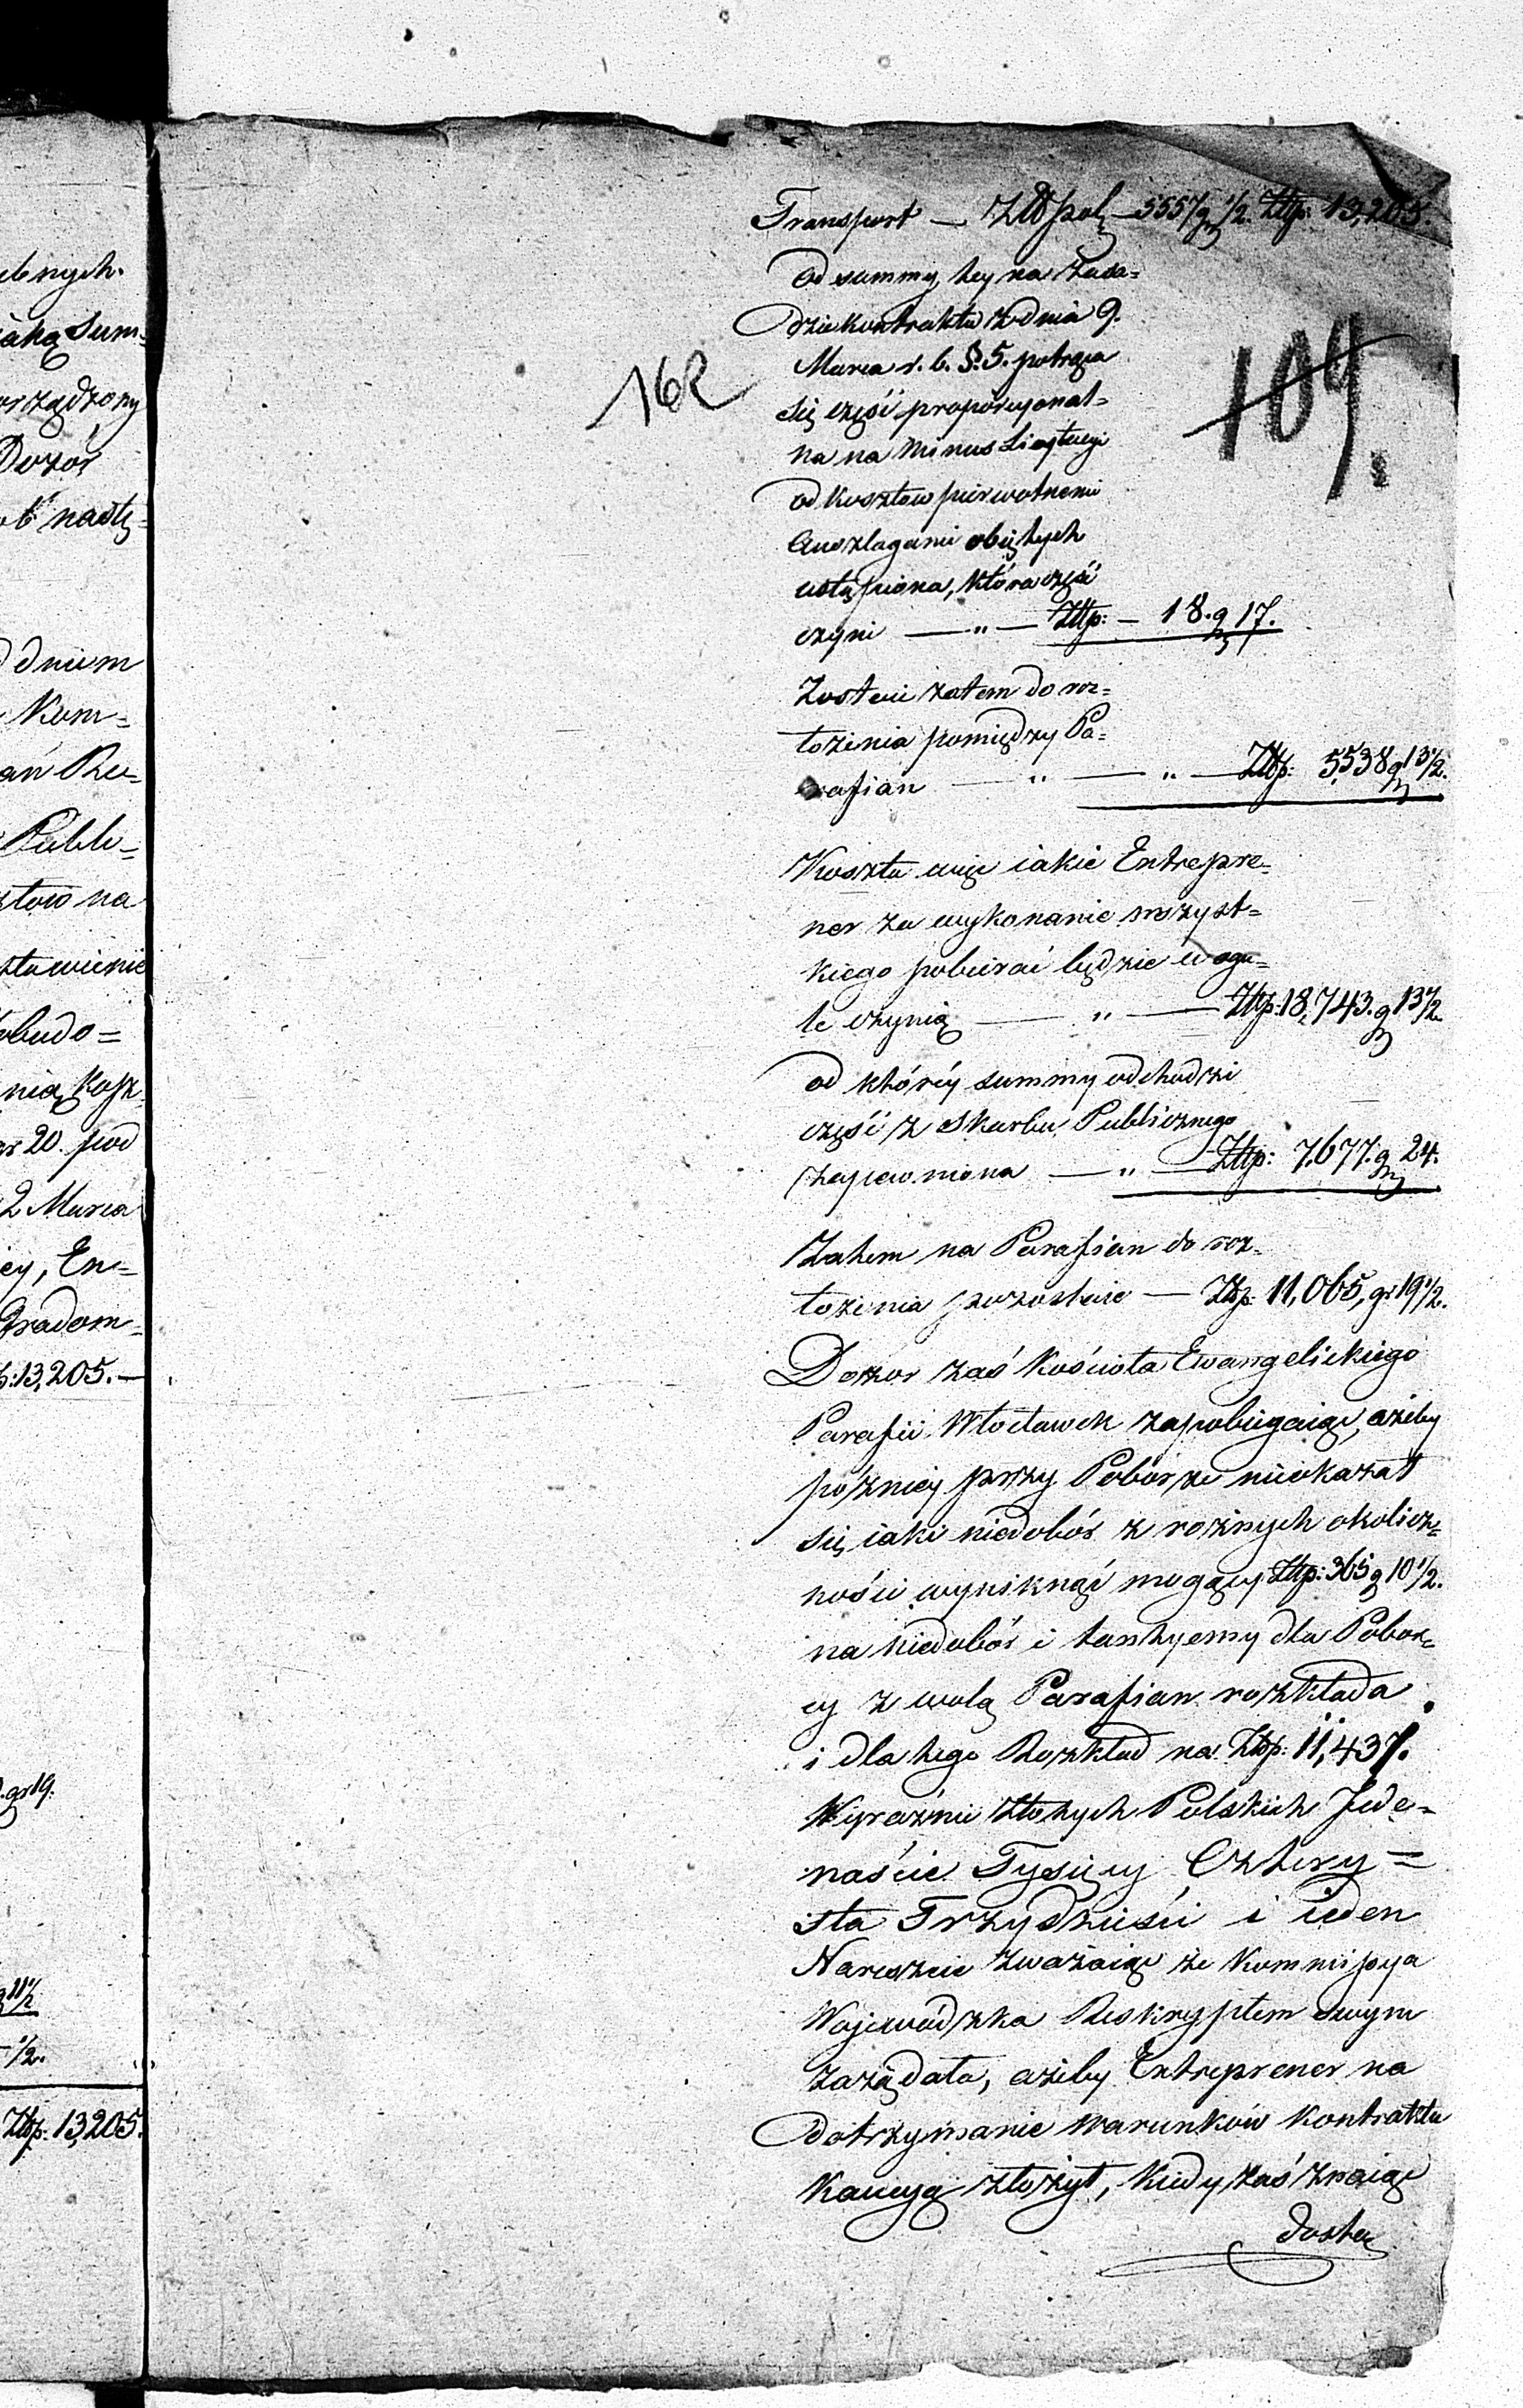 ebnych.
iaką Sum-
orządzony
Dozór
ob nastę-
dniem
Kom=
Publi-
sztow na
stawienie
obudo=
nią kosz
gr 20. pod
2 Marca
cy, En=
Gradom-
13,205.—
gr 19.
11 1/2
1/2.
Złp. 13,205.
Transport — Złt pol 5557 g 1/2. Złp. 13,205.
od summy tey na zasa-
dzie kontraktu z dnia 9.
Marca r. b. §. 5. potrąca
się część proporcyonal-
na na minus Licytacyi
od kosztow pierwotnemi
Anszlagami obiętych
ustąpiona, która część
czyni — „ — Złp: — 18. g 17.
Zostaie zatem do roz=
łożenia pomiędzy Pa=
rafian — „ — „ — Złp: 5,538 g 13 1/2.
Koszta więc iakie Entrepre-
ner za wykonanie wszyst=
kiego pobierać będzie w ogu=
le czynią — „ — Złp. 18,743. g 13 1/2
od któréy summy odchodzi
część z Skarbu Publicznego
zapewniona — „ — Złp: 7,677. g 24.
Zatem na Parafian do roz-
łożenia pozostaie — Złp. 11,065, gr 19 1/2.
Dozor zaś Kościoła Ewangelickiego
Parafii Włocławek zapobiegaiąc, ażeby
późniéy przy Poborze nieokazał
się iaki niedobór z rożnych okolicz-
ności wyniknąć mogący Złp: 365 g 10 1/2.
na niedobór i tantyemy dla Pobor-
cy z wolą Parafian rozkłada
i dla tego Rozkład na Złp: 11,431.
Wyraźnie Złotych Polskich Jede-
naście Tysięcy Cztery =
sta Trzydzieści i ieden
Nareszcie zważaiąc że Kommissya
Wojewódzka Reskryptem swym
zażądała, ażeby Entreprener na
dotrzymanie warunków kontraktu
Kaucyą złożył, kiedy zaś znaiąc
dosta
162
109.